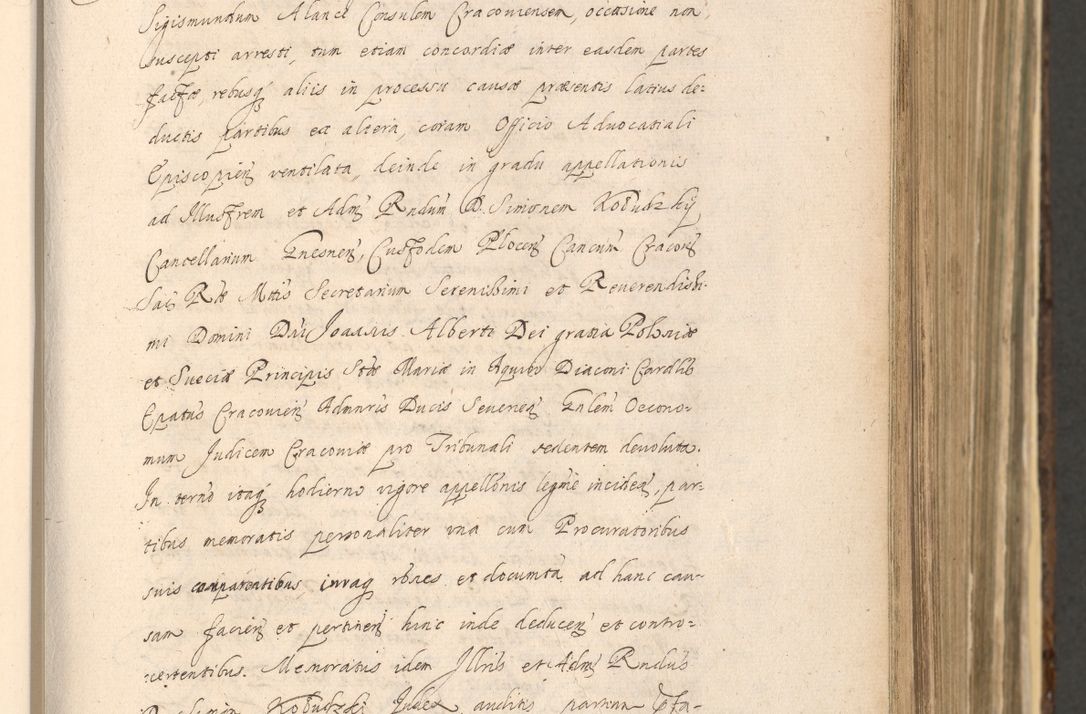 Sigismundum Alance Consulem Cracoviensem, occasione non
suscepti arresti, tum etiam concordiæ inter easdem partes
factæ, rebusq aliis in processu causæ præsentis latius de=
ductis partibus ex altera, coram Officio Advocatiali
Episcopien ventilata, deinde in gradu appellationis
ad Illustrem et Adm Rndum D. Simonem Kołudzkij
Cancellarium Gnesnen, Custodem Plocen Cancum Cracovien
Sac Ræ Mtis Secretarium Serenissimi et Reverendissi-
mi Domini Dni Joannis Alberti Dei gratia Poloniæ
et Sueciæ Principis Stæ Mariæ in Aquiro Diaconi Cardlis
Epatus Cracovien Admnris Ducis Severien Gnlem Oecono=
mum Judicem Cracoviæ pro Tribunali sedentem devoluta.
In termo itaq hodierno vigore appellonis legme inciden, par=
tibus memoratis personaliter una cum Procuratoribus
suis comparentibus, iuraq rones et documta ad hanc cau-
sam facien et pertinen hinc inde deducen et contro=
vertentibus. Memoratus idem Illris et Adm Rndus
D. Simon Kołudzki Judex, auditis partium